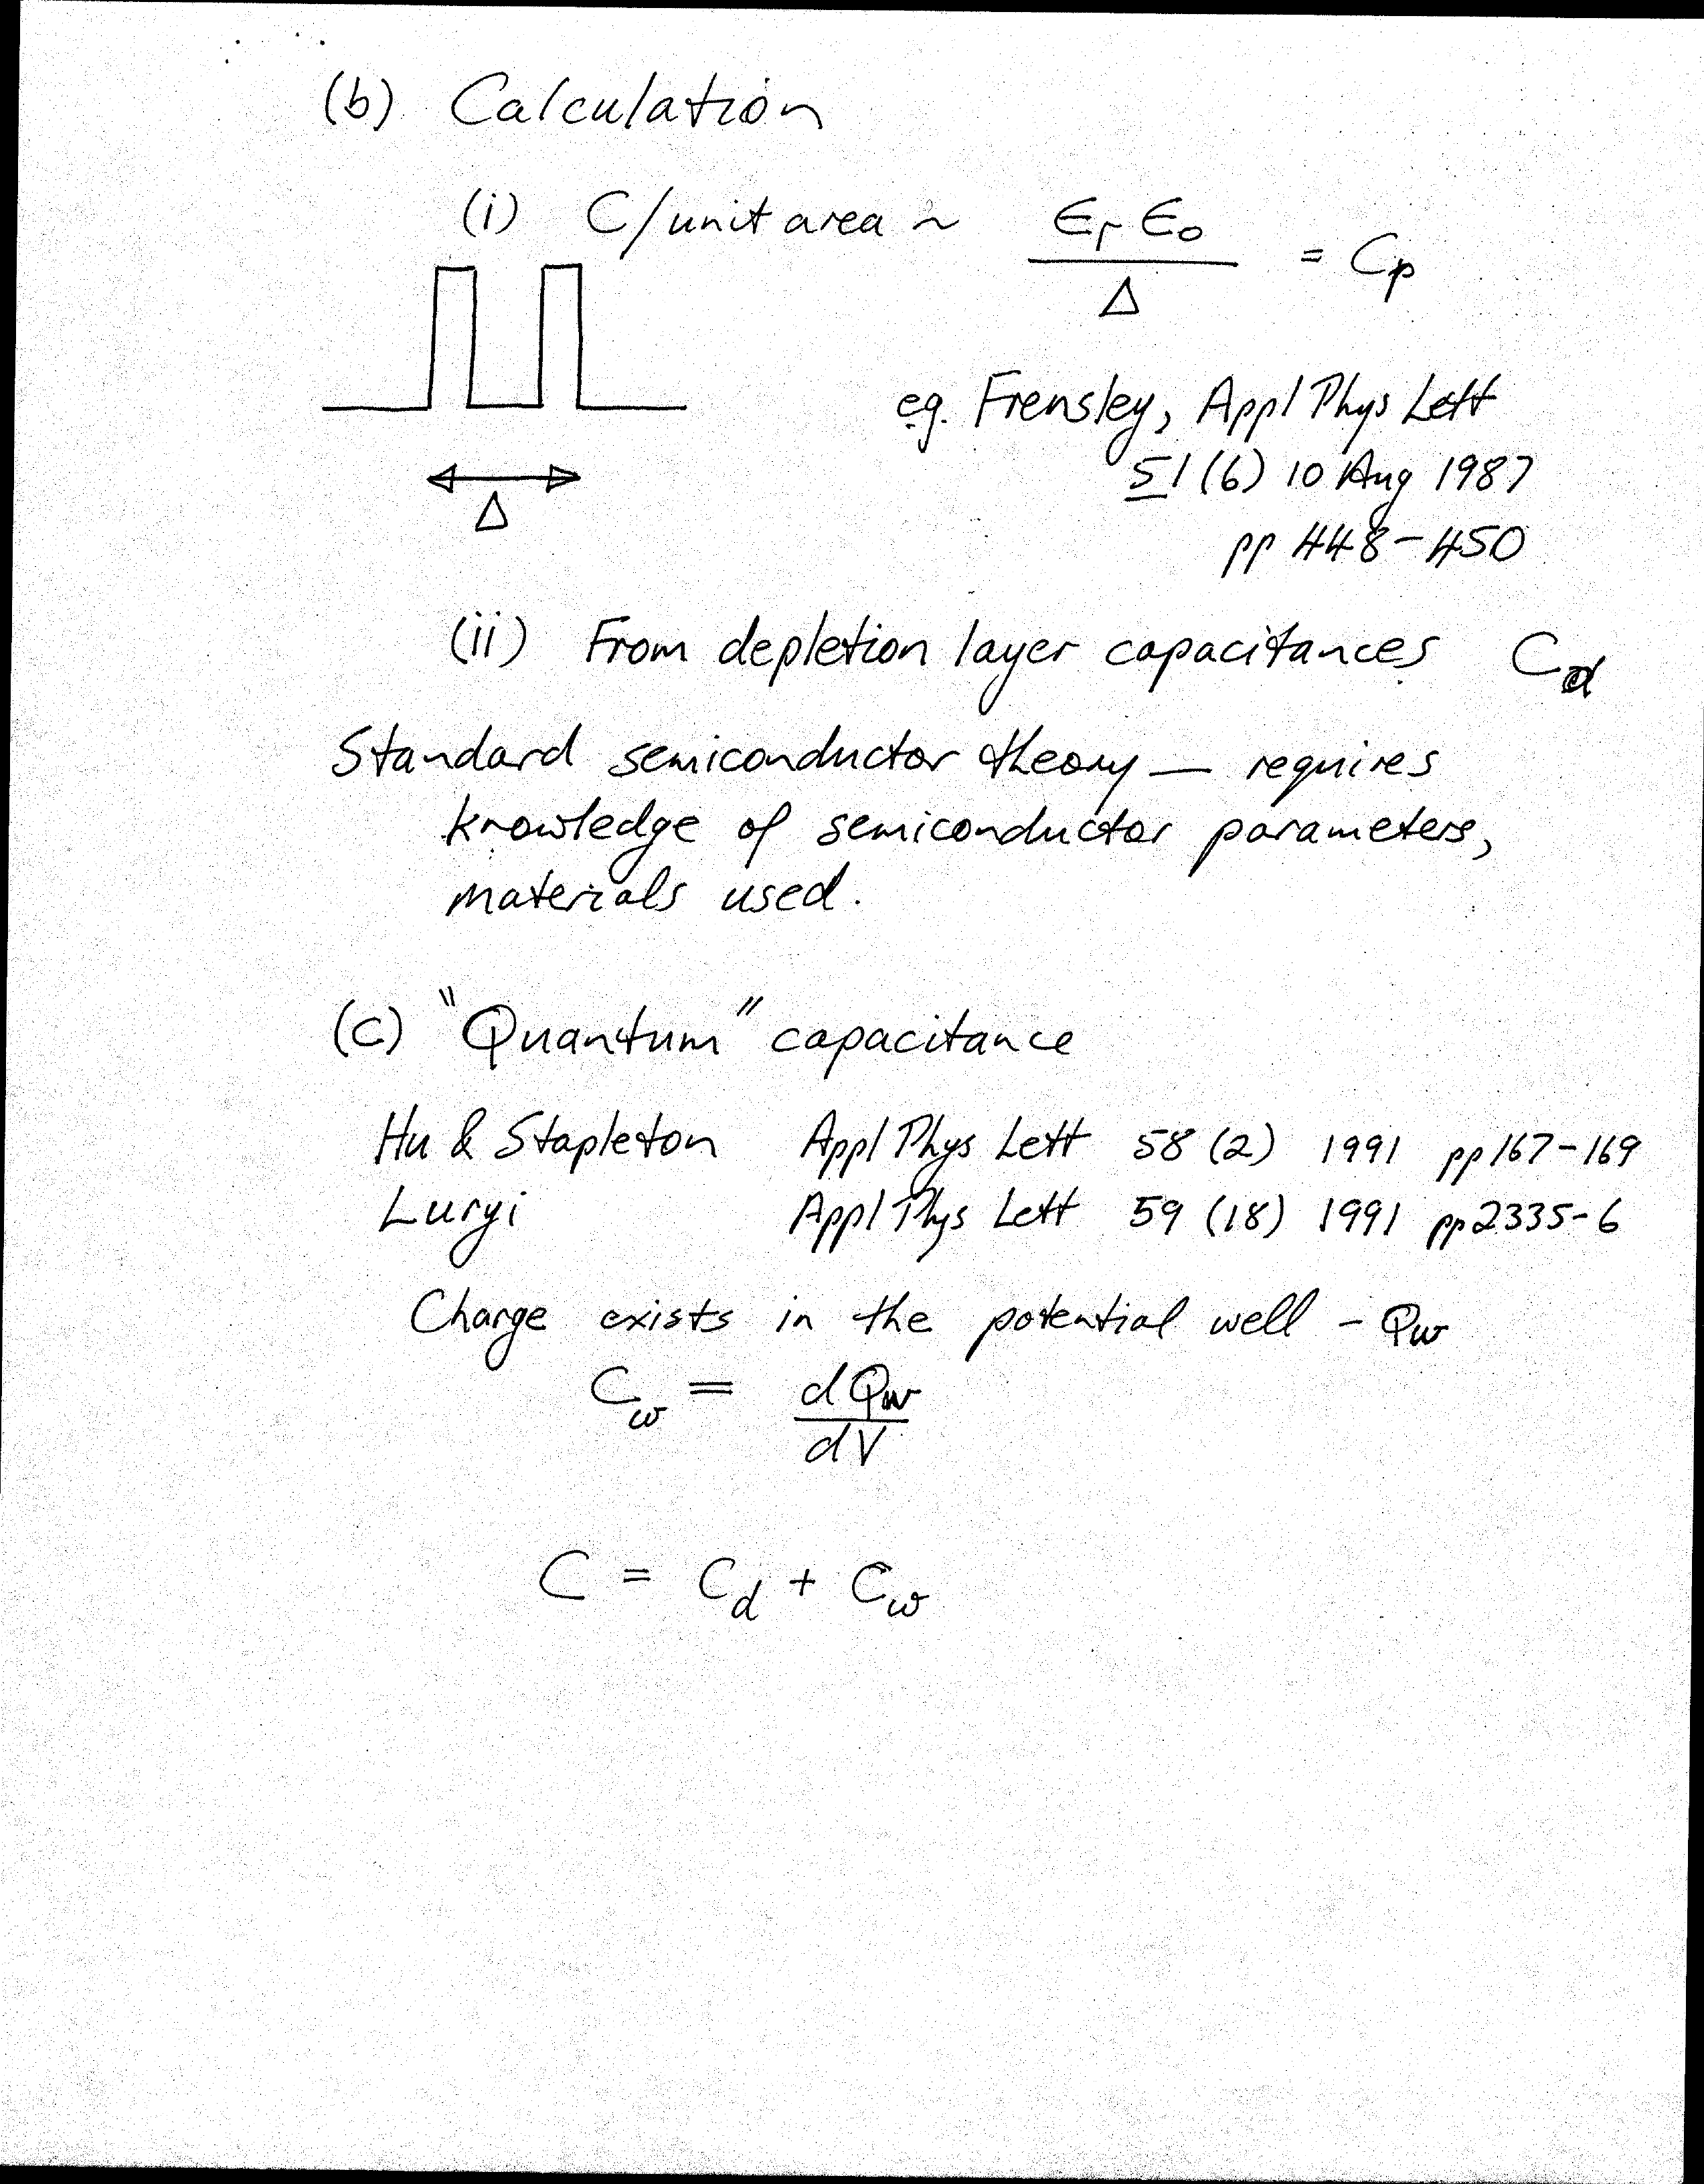 (b) Calculation
(i) C/unit area ~ εr ε0 / Δ = Cp
Δ
eg. Frensley, Appl Phys Lett
51 (6) 10 Aug 1987
pp 448-450
(ii) From depletion layer capacitances Cd
Standard semiconductor theory — requires
knowledge of semiconductor parameters,
materials used.
(c) "Quantum" capacitance
Hu & Stapleton Appl Phys Lett 58 (2) 1991 pp 167-169
Luryi Appl Phys Lett 59 (18) 1991 pp 2335-6
Charge exists in the potential well - Qw
Cw = dQw / dV
C = Cd + Cw